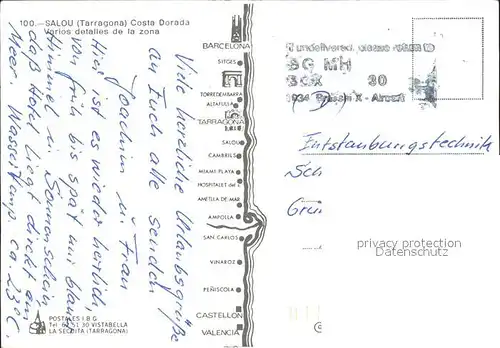 100.—SALOU (Tarragona) Costa Dorada
Varios detalles de la zona
Viele herzliche Urlaubsgrüße
an Euch alle senden
Joachim u. Frau
Hier ist es wieder herrlich,
von früh bis spät nur blauer
Himmel u. Sonnenschein,
das Hotel liegt direkt am
Meer. Wassertemp. ca. 23°C.
POSTALES I.B.G.
VISTABELLA
LA SECUITA (TARRAGONA)
BARCELONA
SITGES
TORREDEMBARRA
ALTAFULLA
TARRAGONA
SALOU
CAMBRILS
MIAMI PLAYA
HOSPITALET del I.
AMETLLA DE MAR
AMPOLLA
SAN CARLOS
VINAROZ
PEÑISCOLA
CASTELLON
VALENCIA
If undelivered, please return to
BOX 30
(D)
Entstaubungstechnik
Sch
personalisiertes
Datenschutz